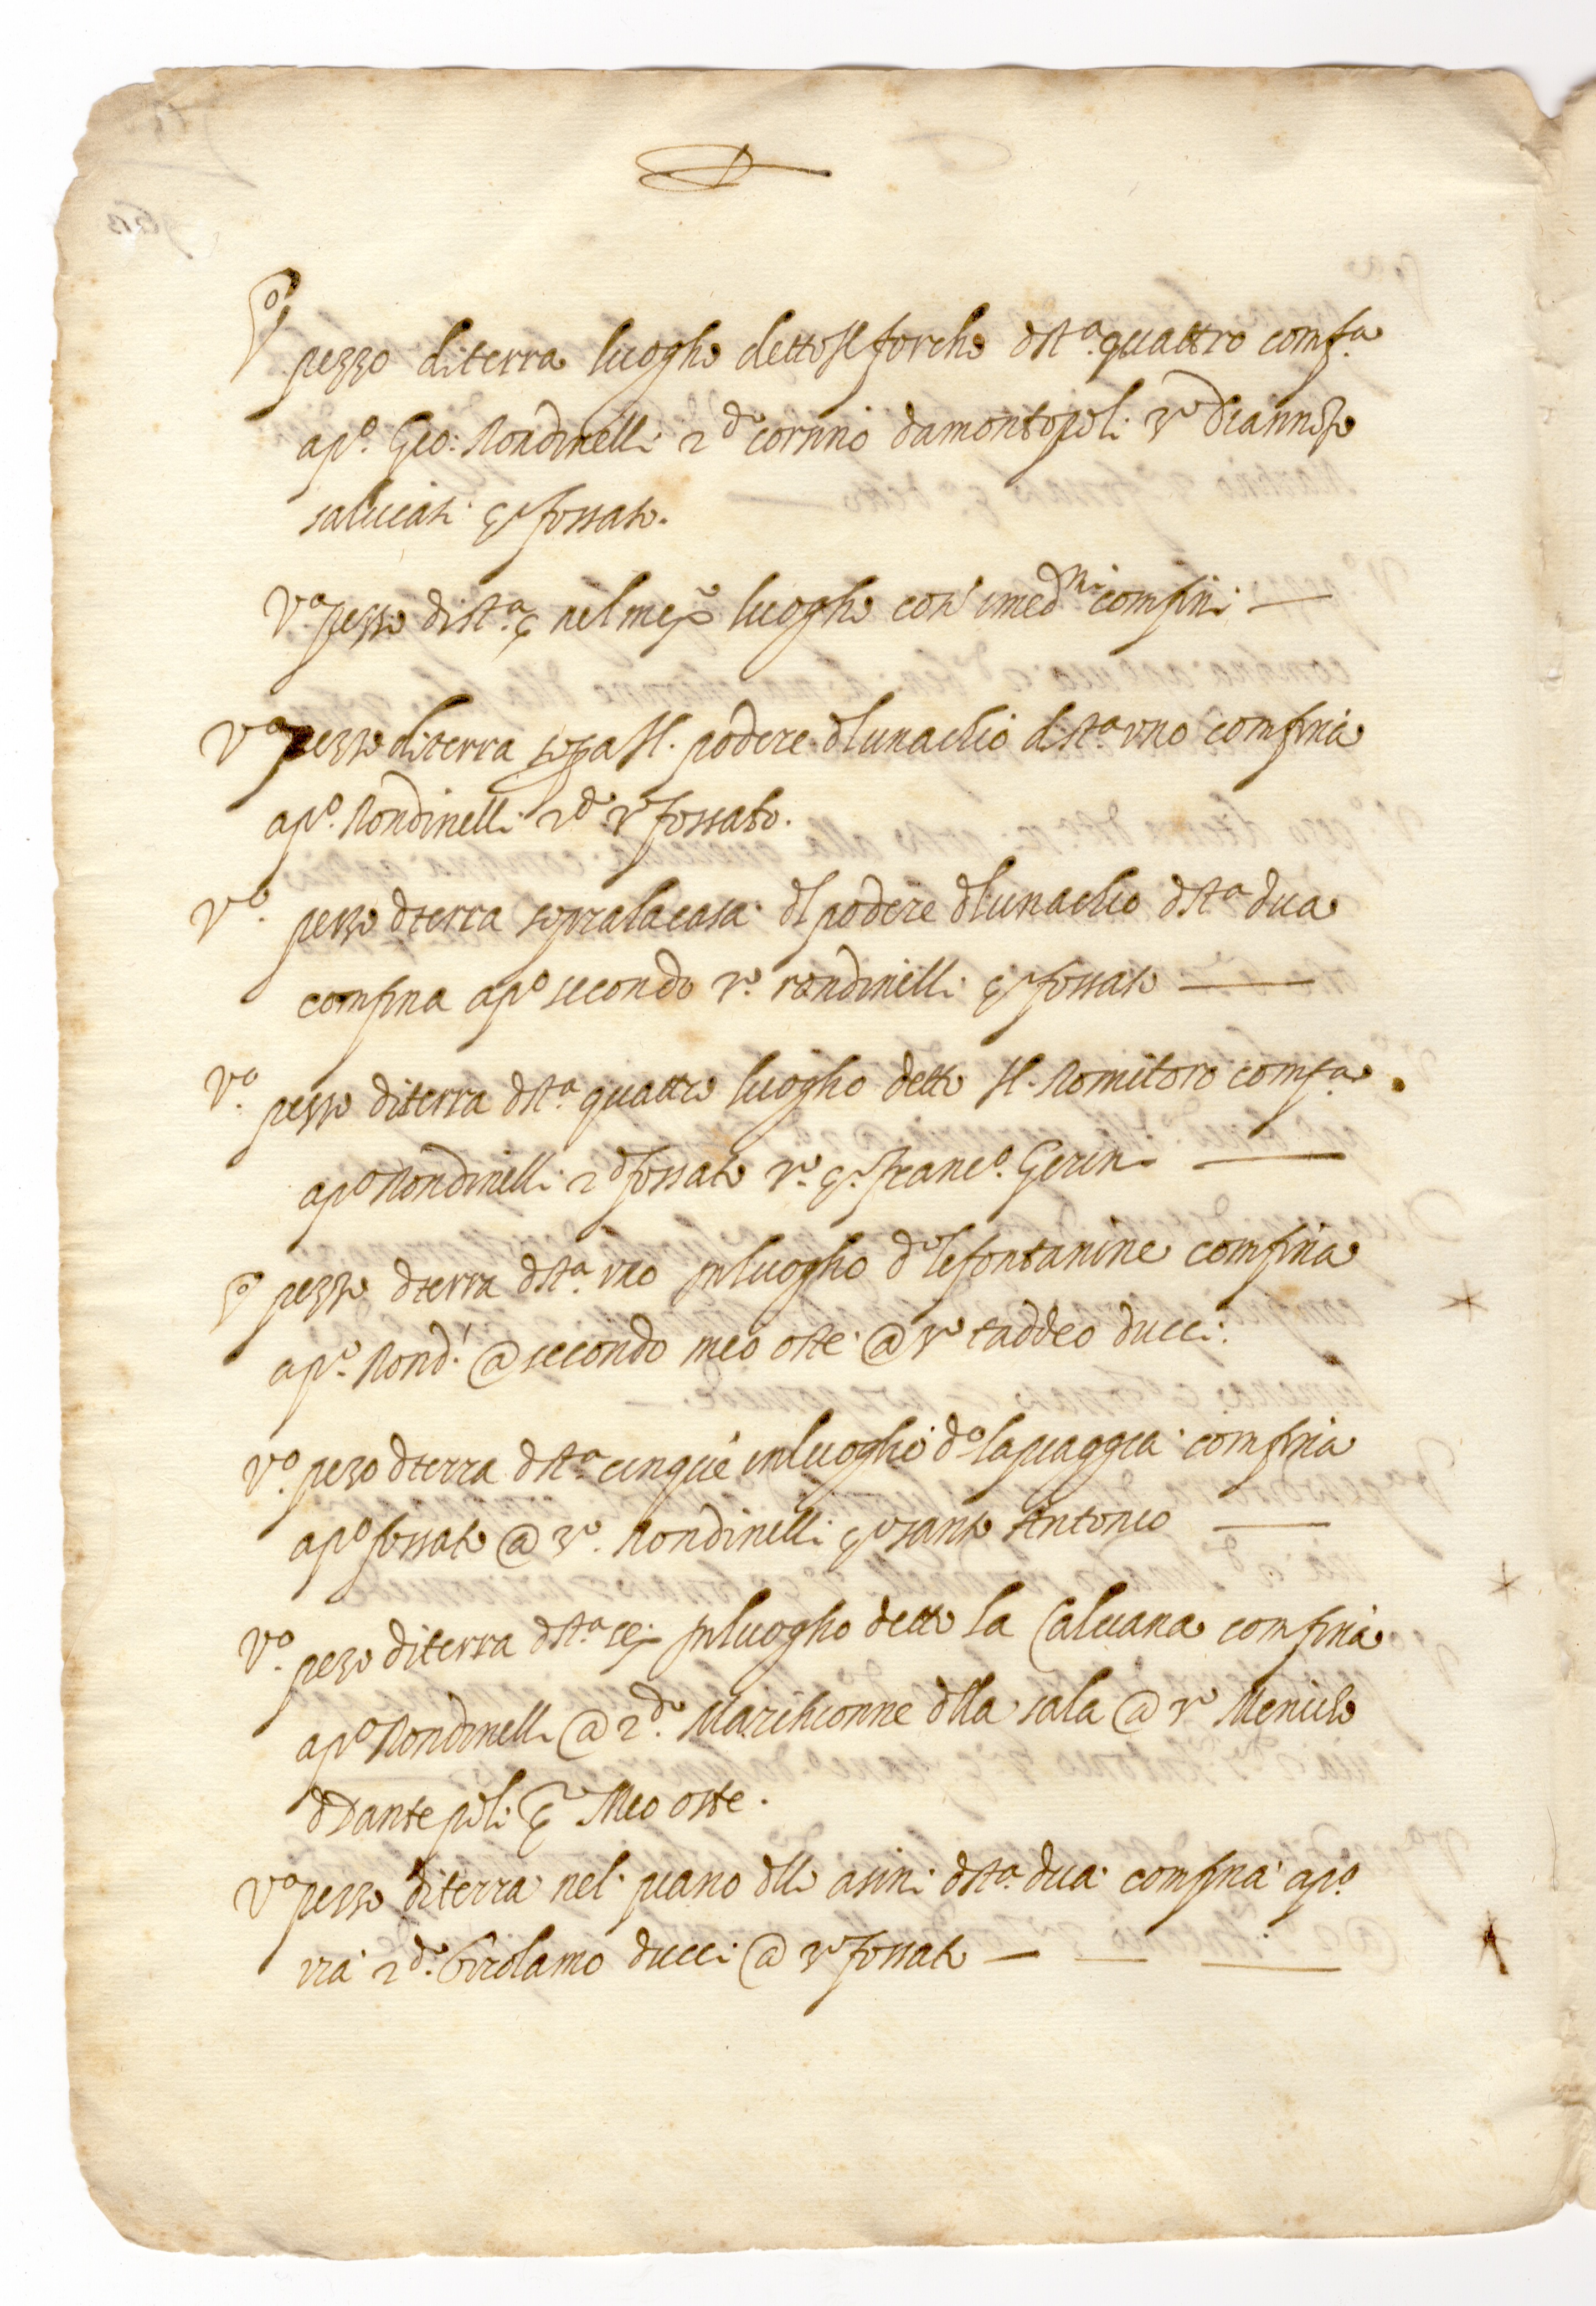 Vº
pezzo di terra luogho detto Il forche d stª. quattro confª
apº. Gio: Rondinelli 2dº corsino da montopoli 3º Giannozo
saluiati 4º fossato.
Vº pezzo di stª 4 nel mezo luogho con i medmi confini —
Vº pezzo di terra sopª Il. podere d lunachio di stª uno confina
apº. Rondinelli 2dº 3º fossato.
Vº. pezzo d terra sopra la casa dl podere d lunachio d stª dua
confina apº secondo 3º. rondinelli 4º fossato —
Vº. pezzo di terra d stª. quattro luogho detto Il. Romitoro confª
apº Rondinelli 2d fossato 3º. 4º. francº. Gerini —
Vº pezzo d terra d stª. uno in luogho dº le fontanine confina
apº. Rond.i @ secondo meo oste @ 3º taddeo ducci.
Vº. pezo d terra d stª cinque in luogho dº la piaggia confina
apº fossato @ 3º. Rondinelli 4º santo Antonio —
Vº. pezo di terra d stª sei in luogho detto la Caluana confina
apº Rondinelli @ 2dº. Marchionne dlla sala @ 3º Menicho
d Dante poli 4º Meo oste.
Vº pezzo di terra nel piano dlli asini d stª. dua confina apº.
via 2dº. Girolamo ducci @ 3º fossato — — —